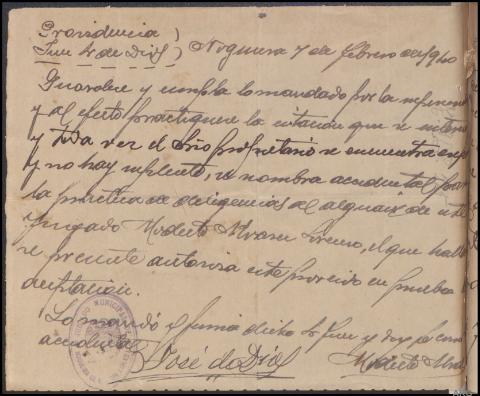 Providencia )
Juez Sr de Dios ) Noguera 7 de febrero de 1940
Guardese y cumpla lo mandado por la
y al efecto practiquese la citacion que se
y toda vez el Srio propietario se encuentra
y no hay suplente, se nombra accidental para
la practica de diligencias al alguacil de este
Juzgado Modesto, el que
se presente autoriza este proveido en prueba
aceptacion.
Lo mandó y firma dicho Sr Juez y doy fe como
accidental
José de Dios Modesto